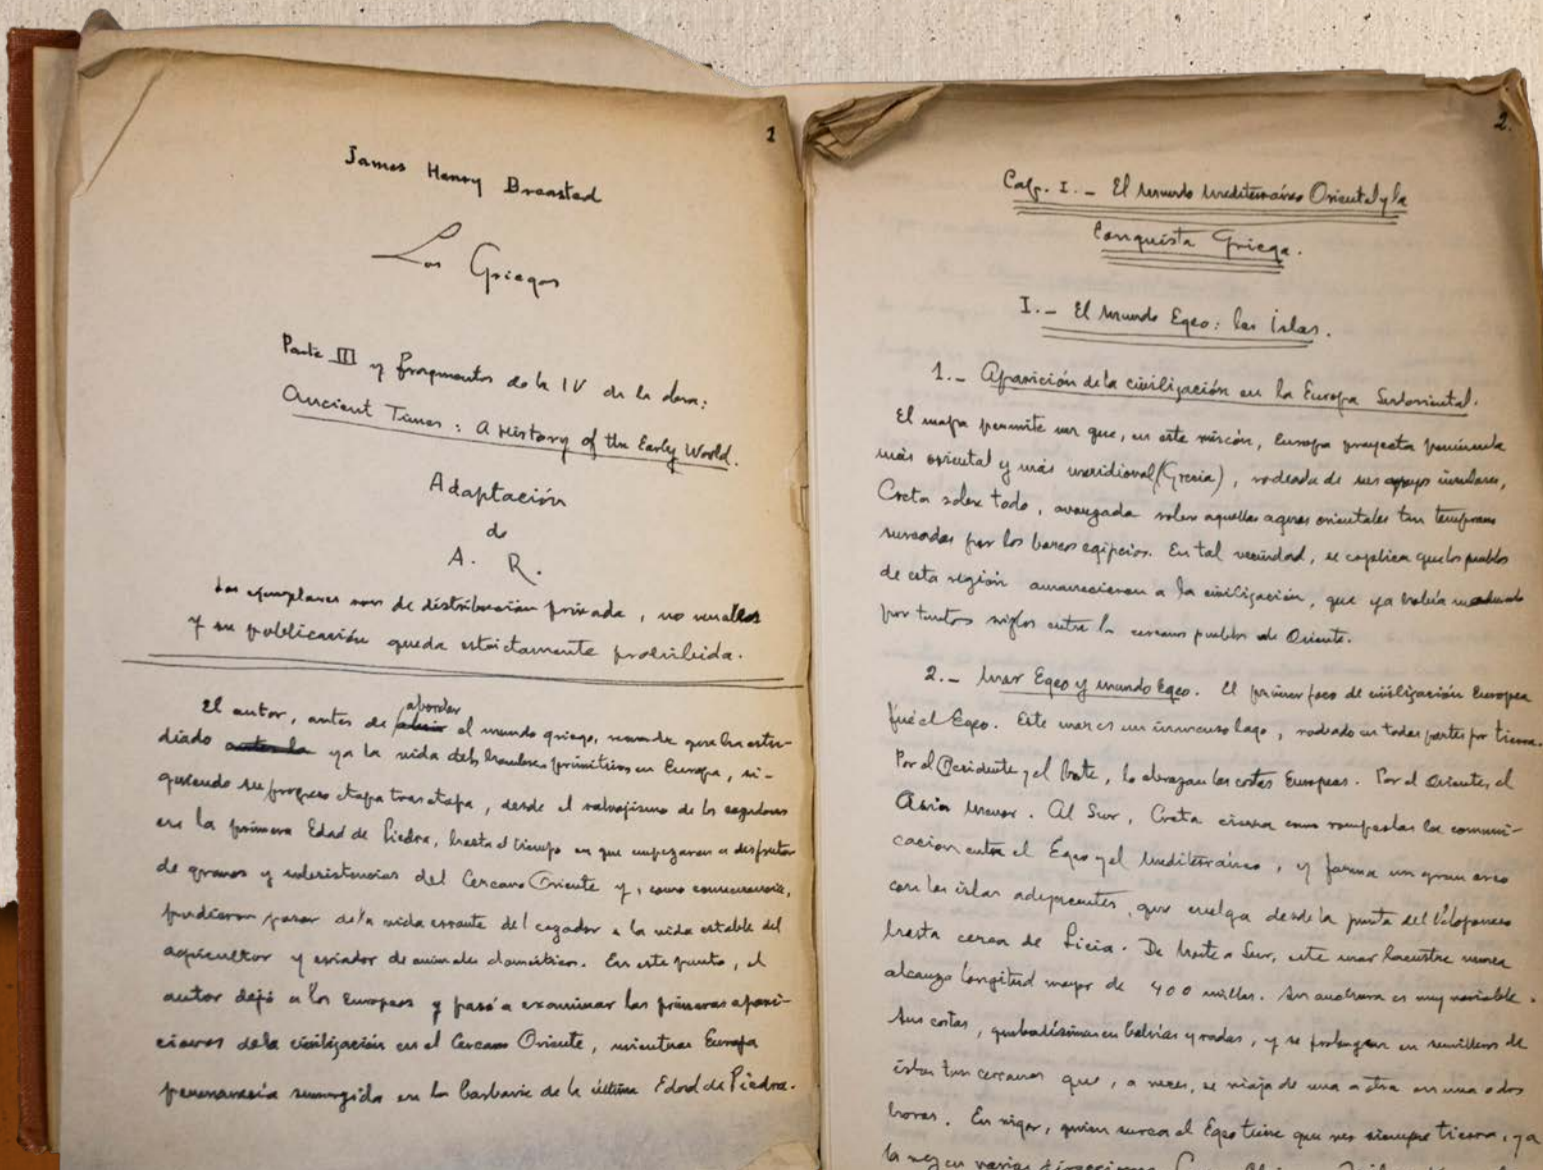 1
James Henry Breasted
Los Griegos
Parte III y fragmentos de la IV de la obra:
Ancient Times: A History of the Early World.
Adaptación
de
A. R.
Los ejemplares son de distribución privada, no venales
y su publicación queda estrictamente prohibida.
El autor, antes de abordar el mundo griego, recuerda que ha estu-
diado ya la vida del hombre primitivo en Europa, si-
guiendo su progreso etapa tras etapa, desde el salvajismo de los cazadores
en la primera Edad de Piedra, hasta el tiempo en que empezaron a disfrutar
de granos y subsistencias del Cercano Oriente y, como consecuencia,
pudieron pasar de la vida errante del cazador a la vida estable del
agricultor y criador de animales domésticos. En este punto, el
autor dejó a los Europeos y pasó a examinar las primeras apari-
ciones de la civilización en el Cercano Oriente, mientras Europa
permanecía sumergida en la barbarie de la última Edad de Piedra.
2.
Cap. I.- El mundo mediterráneo Oriental y la
Conquista Griega.
I.- El mundo Egeo: las Islas.
1.- Aparición de la civilización en la Europa Sudoriental.
El mapa permite ver que, en este rincón, Europa proyecta península
más oriental y más meridional (Grecia), rodeada de sus insulares,
Creta sobre todo, avanzada sobre aquellas aguas orientales tan temprano
surcadas por los barcos egipcios. En tal vecindad, se explica que los pueblos
de esta región amanecieron a la civilización, que ya había madurado
por tantos siglos entre los cercanos pueblos de Oriente.
2.- Mar Egeo y mundo Egeo. El primer foco de civilización Europea
fué el Egeo. Este mar es un inmenso lago, rodeado en todas partes por tierra.
Por el Occidente y el Norte, lo abrazan las costas Europeas. Por el Oriente, el
Asia Menor. Al Sur, Creta cierra como rompeolas la comuni-
cación entre el Egeo y el Mediterráneo, y forma un gran arco
con las islas adyacentes, que cuelga desde la punta del Peloponeso
hasta cerca de Licia. De Norte a Sur, este mar lacustre nunca
alcanza longitud mayor de 400 millas. Su anchura es muy variable.
Sus costas, quebradísimas en bahías y radas, y se prolongan en semillero de
islas tan cercanas que, a veces, se viaja de una a otra en una o dos
horas. En rigor, quien surca el Egeo tiene que ver siempre tierra, y a
la vez en varias direcciones.